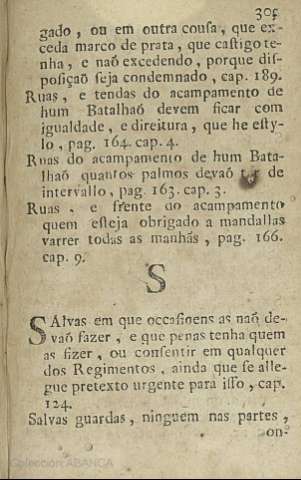 305
gado, ou em outra cousa, que ex-
ceda marco de prata, que castigo te-
nha, e naõ excedendo, porque dis-
posiçaõ seja condemnado, cap. 189.
Ruas, e tendas do acampamento de
hum Batalhaõ devem ficar com
igualdade, e direitura, que he esty-
lo, pag. 164. cap. 4.
Ruas do acampamento de hum Bata-
lhaõ quantos palmos devaõ ter de
intervallo, pag. 163. cap. 3.
Ruas, e frente do acampamento
quem esteja obrigado a mandallas
varrer todas as manhãs, pag. 166.
cap. 9.
S
SAlvas em que occasioens as naõ de-
vaõ fazer, e que penas tenha quem
as fizer, ou consentir em qualquer
dos Regimentos, ainda que se alle-
gue pretexto urgente para isso, cap.
124.
Salvas guardas, ninguem nas partes,
on-
Colección ABANCA